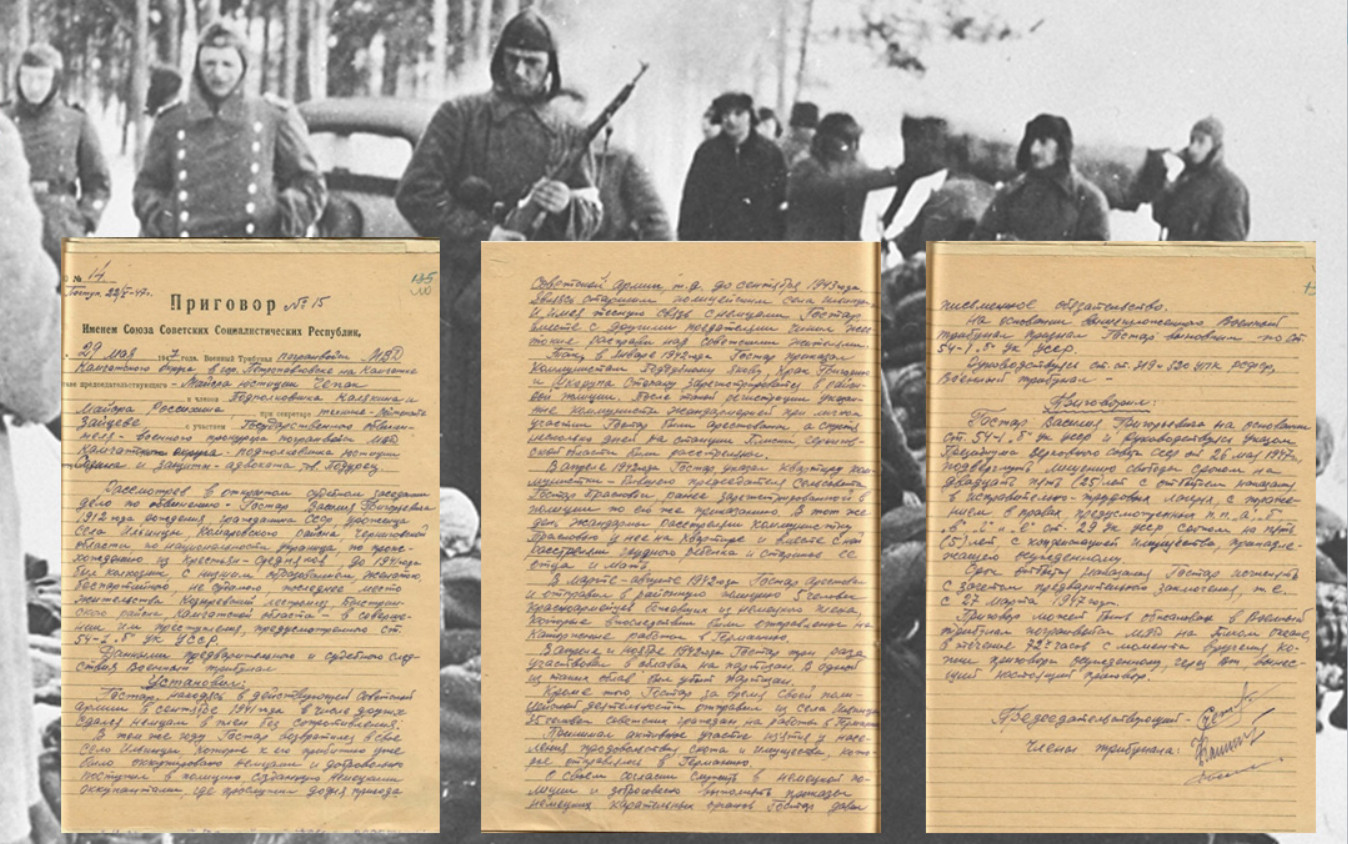 № 14
135
Приговор № 15
Именем Союза Советских Социалистических Республик,
29 мая 1947 года. Военный Трибунал погранвойск МВД
Камчатского округа в гор. Петропавловске на Камчатке
председательствующего - Майора юстиции
и членов Подполковника Калякина и
Майора Россихина, при секретаре технике-лейтенанте
Зайцеве с участием Государственного обвини-
теля - военного прокурора погранвойск МВД
Камчатского округа - подполковника юстиции
и защиты - адвоката тов.
Рассмотрев в открытом судебном заседании
дело по обвинению - Гостар Василия Григорьевича
1912 года рождения, гражданина СССР, уроженца
села Ильинцы, Комаровского района, Черниговской
области, по национальности украинца, по проис-
хождению из крестьян-середняков, до 1941 года
был колхозник, с низшим образованием, женатого,
беспартийного, не судимого, последнее место
жительства Козыревский леспромхоз, Быстрин-
ского района Камчатской области - в соверше-
нии им преступления, предусмотренного ст.
54-1 „б" УК УССР.
Данными предварительного и судебного след-
ствия, Военный трибунал
Установил:
Гостар, находясь в действующей Советской
армии в сентябре 1941 года в числе других
сдался немцам в плен без сопротивления.
В том же году Гостар возвратился в свое
село Ильинцы, которое к его прибытию уже
было оккупировано немцами и добровольно
поступил в полицию, созданную немецкими
оккупантами, где прослужил до дня прихода
Советской Армии, т.е. до сентября 1943 года
являясь старшим полицейским села Ильинцы,
и имея тесную связь с немцами Гостар
вместе с другими предателями чинил жес-
токие расправы над советскими жителями.
Так, в январе 1942 года Гостар приказал
коммунистам Якову, Храп Григорию
и зарегистрироваться в район-
ной полиции. После такой регистрации указан-
ные коммунисты жандармерией при личном
участии Гостар были арестованы а спустя
несколько дней на станции чернигов-
ской области были расстреляны.
В апреле 1942 года Гостар указал квартиру ком-
мунистки - бывшего председателя Сельсовета
Гостар Прасковьи ранее зарегистрированной в
полиции по его же приказанию. В тот же
день жандармы расстреляли коммунистку
Прасковью у нее на квартире и вместе с ней
расстреляли грудного ребенка и стариков ее
отца и мать.
В марте-августе 1942 года Гостар арестовал
и отправил в районную полицию 5 человек
Красноармейцев бежавших из немецкого плена,
которые впоследствии были отправлены на
каторжные работы в Германию.
В апреле и ноябре 1942 года Гостар три раза
участвовал в облавах на партизан. В одной
из таких облав был убит партизан.
Кроме того, Гостар за время своей поли-
цейской деятельности отправил из села Ильинцы
35 человек советских граждан на работы в Германию
Принимал активное участие изъятия у насе-
ления продовольствия, скота и имущества, кото-
рые отправлялись в Германию.
О своем согласии служить в немецкой по-
лиции и добросовестно выполнять приказы
немецких карательных органов Гостар давал
письменное обязательство.
На основании вышеизложенного Военный
трибунал признал Гостар виновным по ст.
54-1 „б" УК УССР.
Руководствуясь ст. ст. 319 и 320 УПК РСФСР,
Военный трибунал -
Приговорил:
Гостар Василия Григорьевича на основании
ст. 54-1 „б" УК УССР и руководствуясь указом
Президиума Верховного Совета СССР от 26 мая 1947г.
подвергнуть лишению свободы сроком на
двадцать пять (25) лет с отбытием наказания
в исправительно-трудовых лагерях, с пораже-
нием в правах предусмотренных п.п. „а", „б"
„в", „г" и „е" ст. 29 УК УССР сроком на пять
(5) лет, с конфискацией имущества, принадле-
жащего осужденному.
Срок отбытия наказания Гостар исчислять
с зачетом предварительного заключения, т.е.
с 27 марта 1947 года.
Приговор может быть обжалован в Военный
трибунал погранвойск МВД на Тихом океане,
в течение 72х часов с момента вручения ко-
пии приговора осужденному, через выне-
сший настоящий приговор.
Председательствующий -
Члены трибунала: